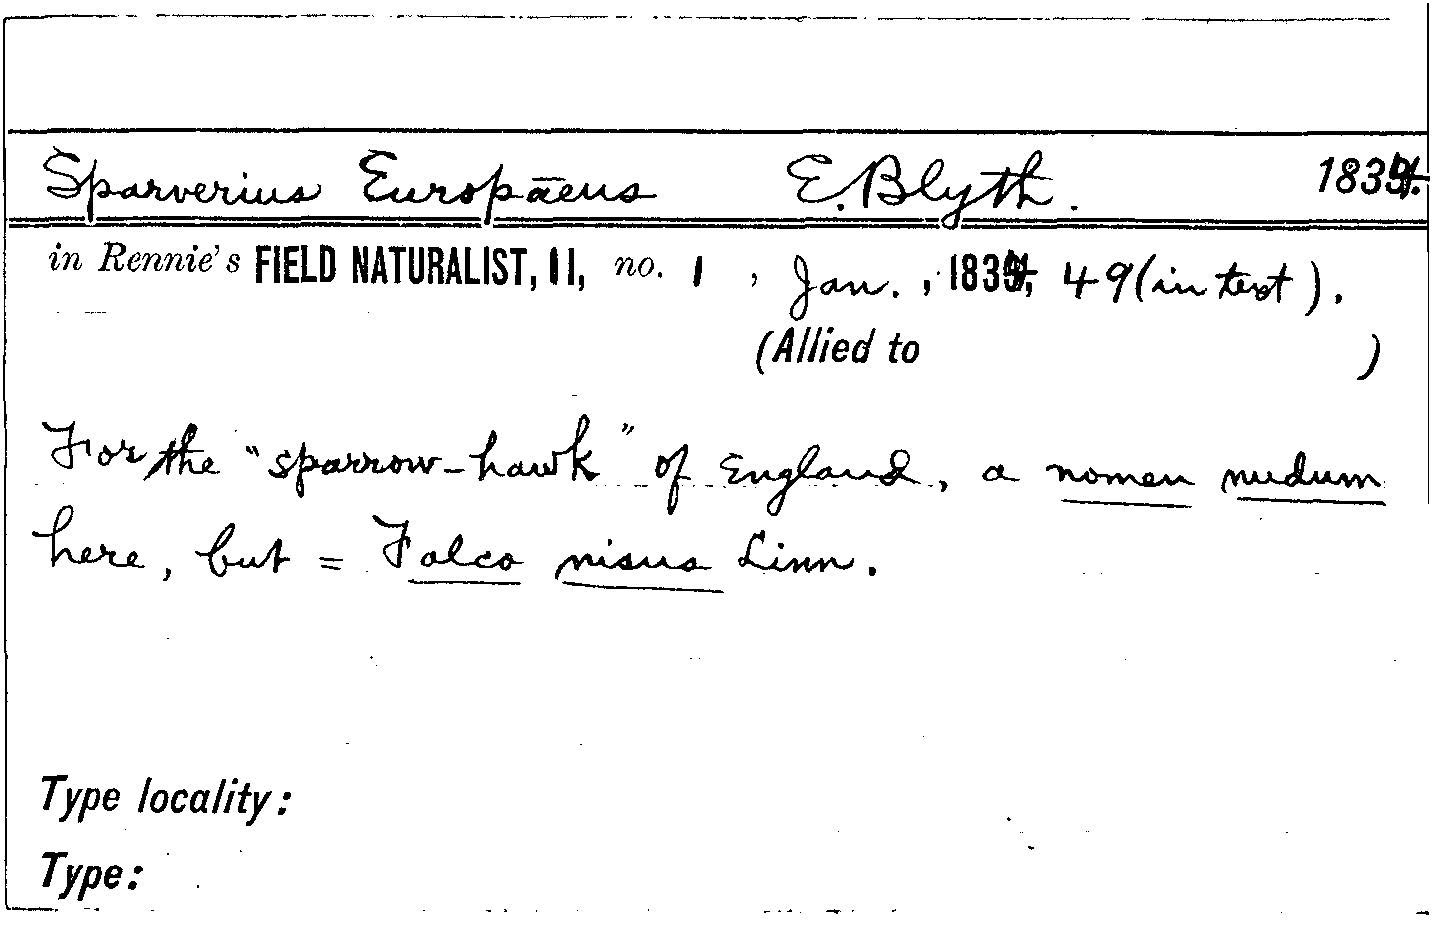 Sparverius Europāeus E. Blyth. 1834.
in Rennie's FIELD NATURALIST, II, no. 1, Jan., 1834, 49 (in text).
(Allied to )
For the "sparrow-hawk" of England, a nomen nudum
here, but = Falco nisus Linn.
Type locality:
Type: